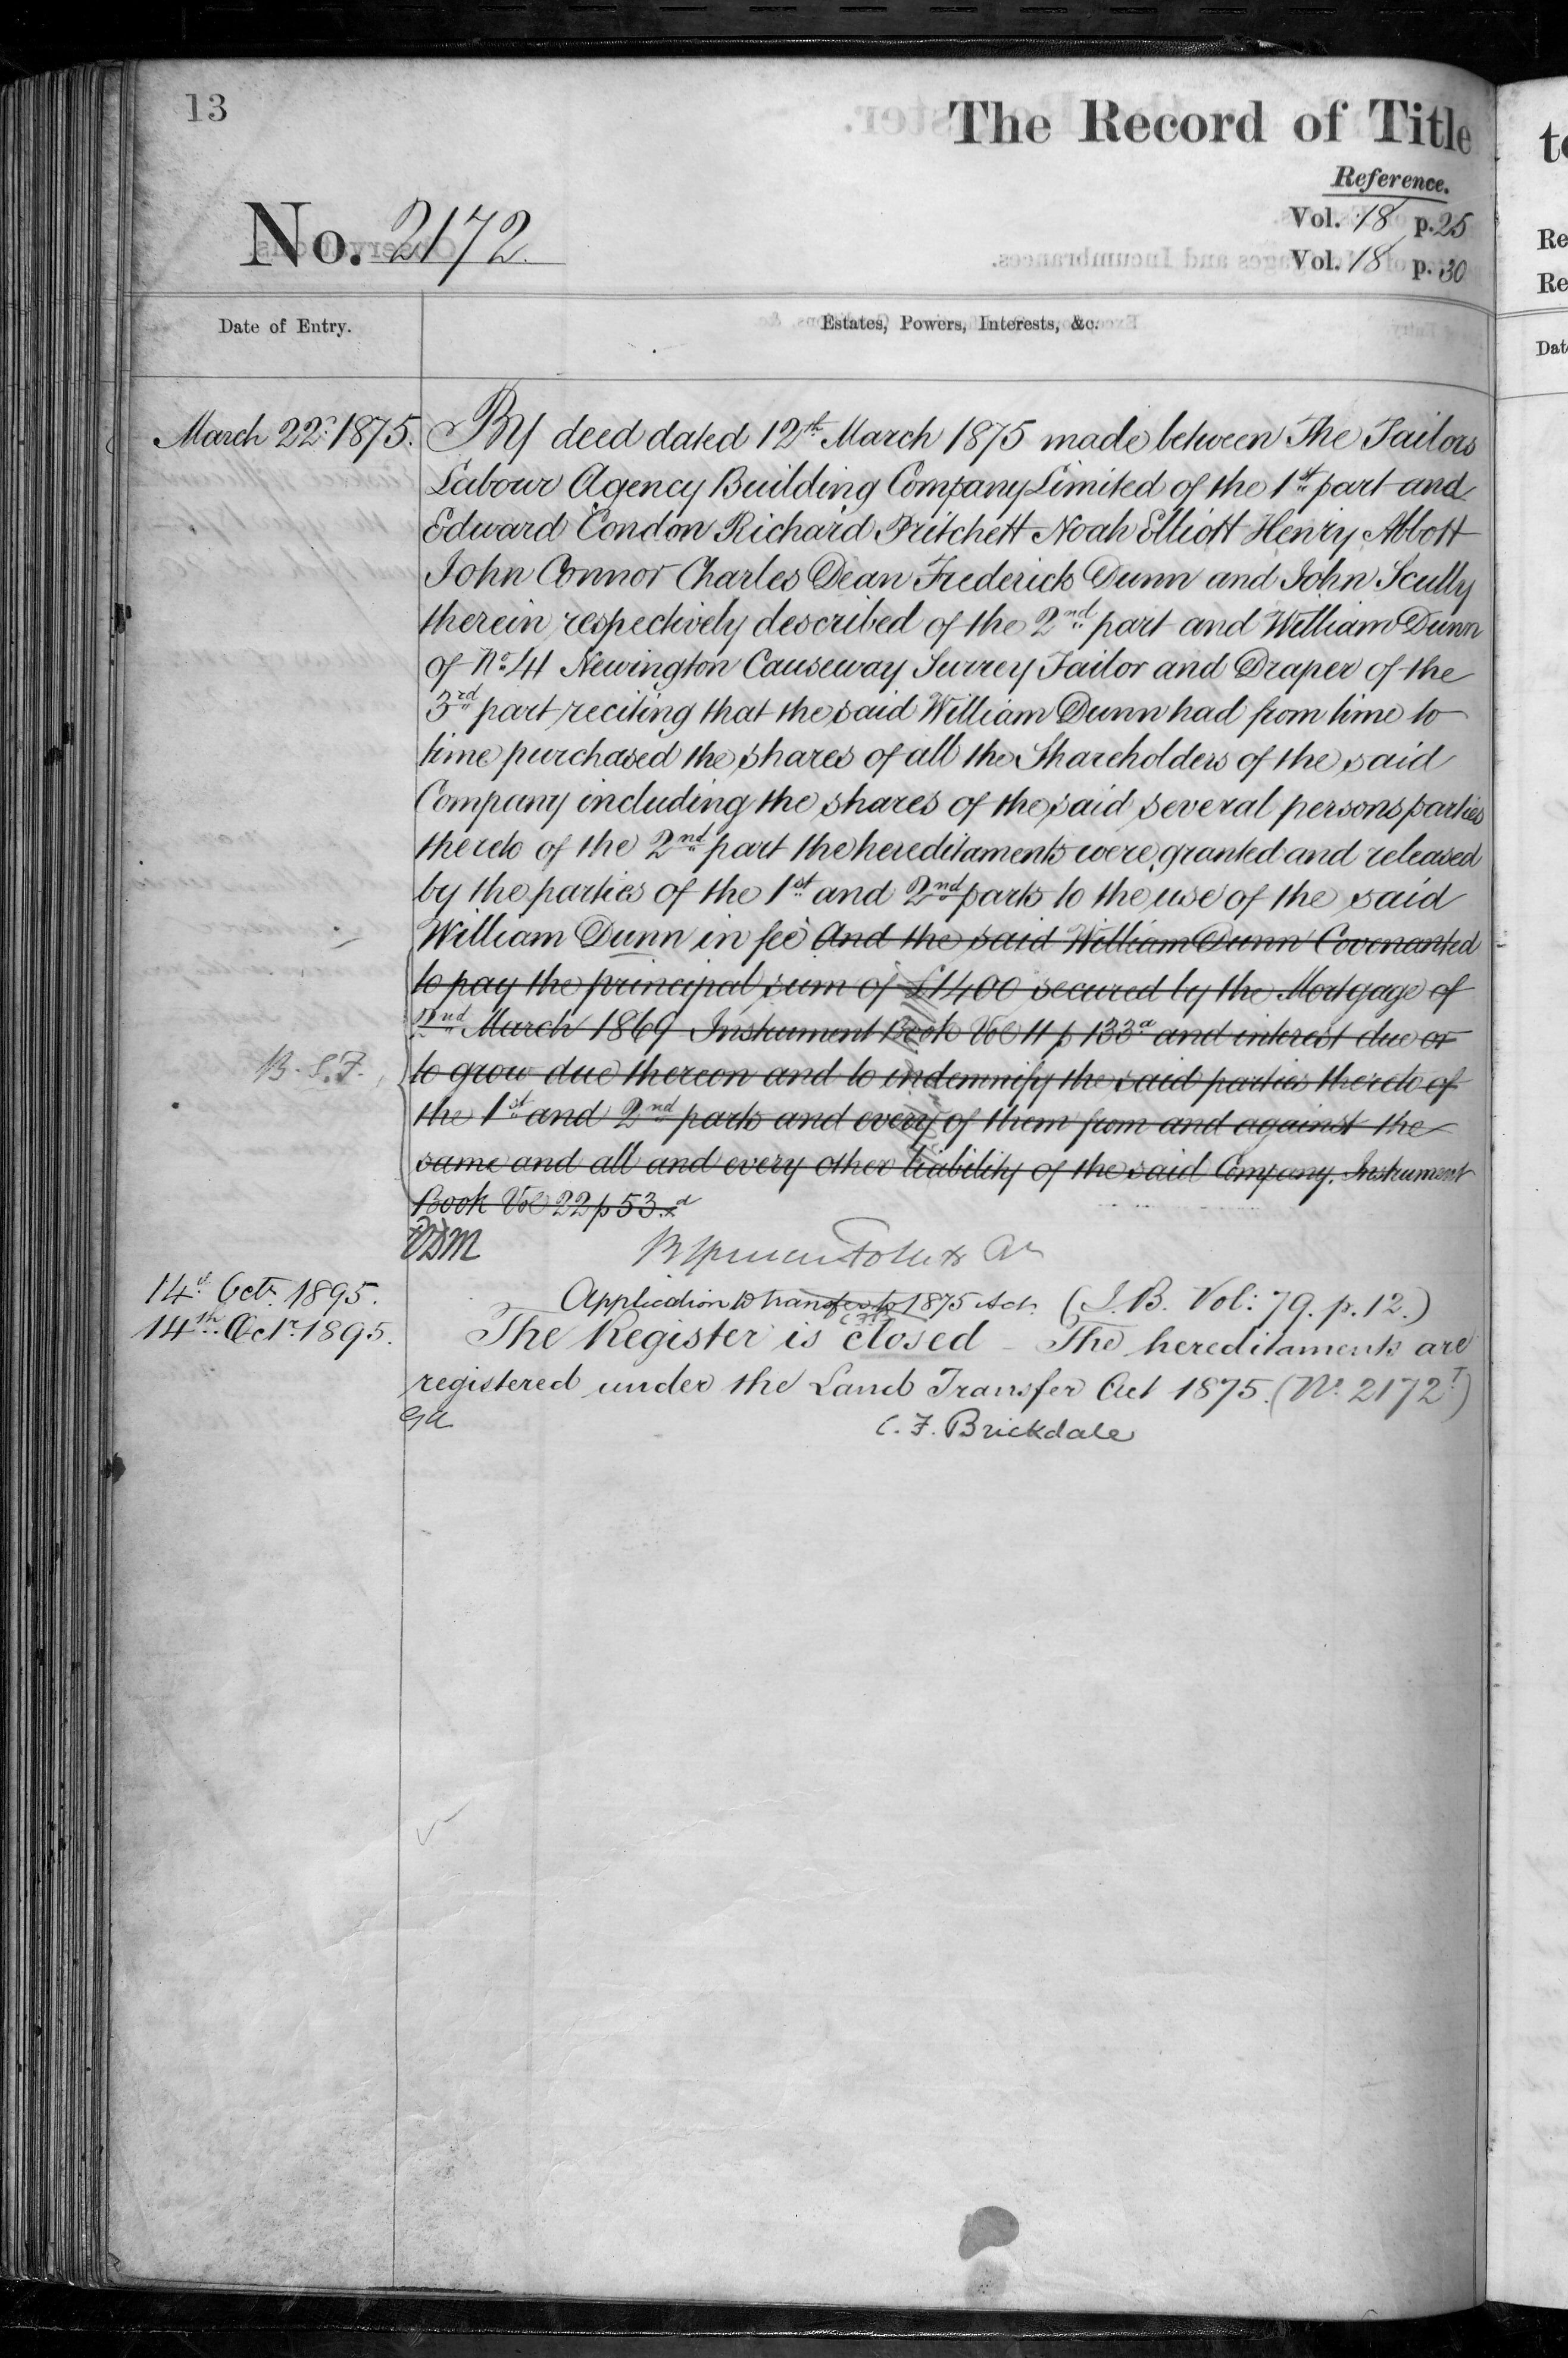 13
The Record of Title
Reference.
No. 2172.
Vol. 18 p. 25
Vol. 18 p. 30
Date of Entry.
Estates, Powers, Interests, &c.
March 22nd 1875.
By deed dated 12th March 1875 made between The Tailors
Labour Agency Building Company Limited of the 1st part and
Edward Condon Richard Pritchett Noah Elliott Henry Abbott
John Connor Charles Dean Frederick Dunn and John Scully
therein respectively described of the 2nd part and William Dunn
of No. 41 Newington Causeway Surrey Tailor and Draper of the
3rd part reciting that the said William Dunn had from time to
time purchased the shares of all the Shareholders of the said
Company including the shares of the said several persons parties
thereto of the 2nd part the hereditaments were granted and released
by the parties of the 1st and 2nd parts to the use of the said
William Dunn in fee And the said William Dunn Covenanted
to pay the principal sum of £1400 secured by the Mortgage of
2nd March 1869 Instrument Book Vol 11 p 133a and interest due or
B. S. F.
to grow due thereon and to indemnify the said parties thereto of
the 1st and 2nd parts and every of them from and against the
same and all and every other liability of the said Company. Instrument
Book Vol 22 p 53.d
14th Octr. 1895.
Application to transfer to 1875 Act. (I.B. Vol: 79. p. 12.)
14th Octr. 1895.
The Register is closed – The hereditaments are
registered under the Land Transfer Act 1875. (No. 2172T)
GA
C. F. Brickdale